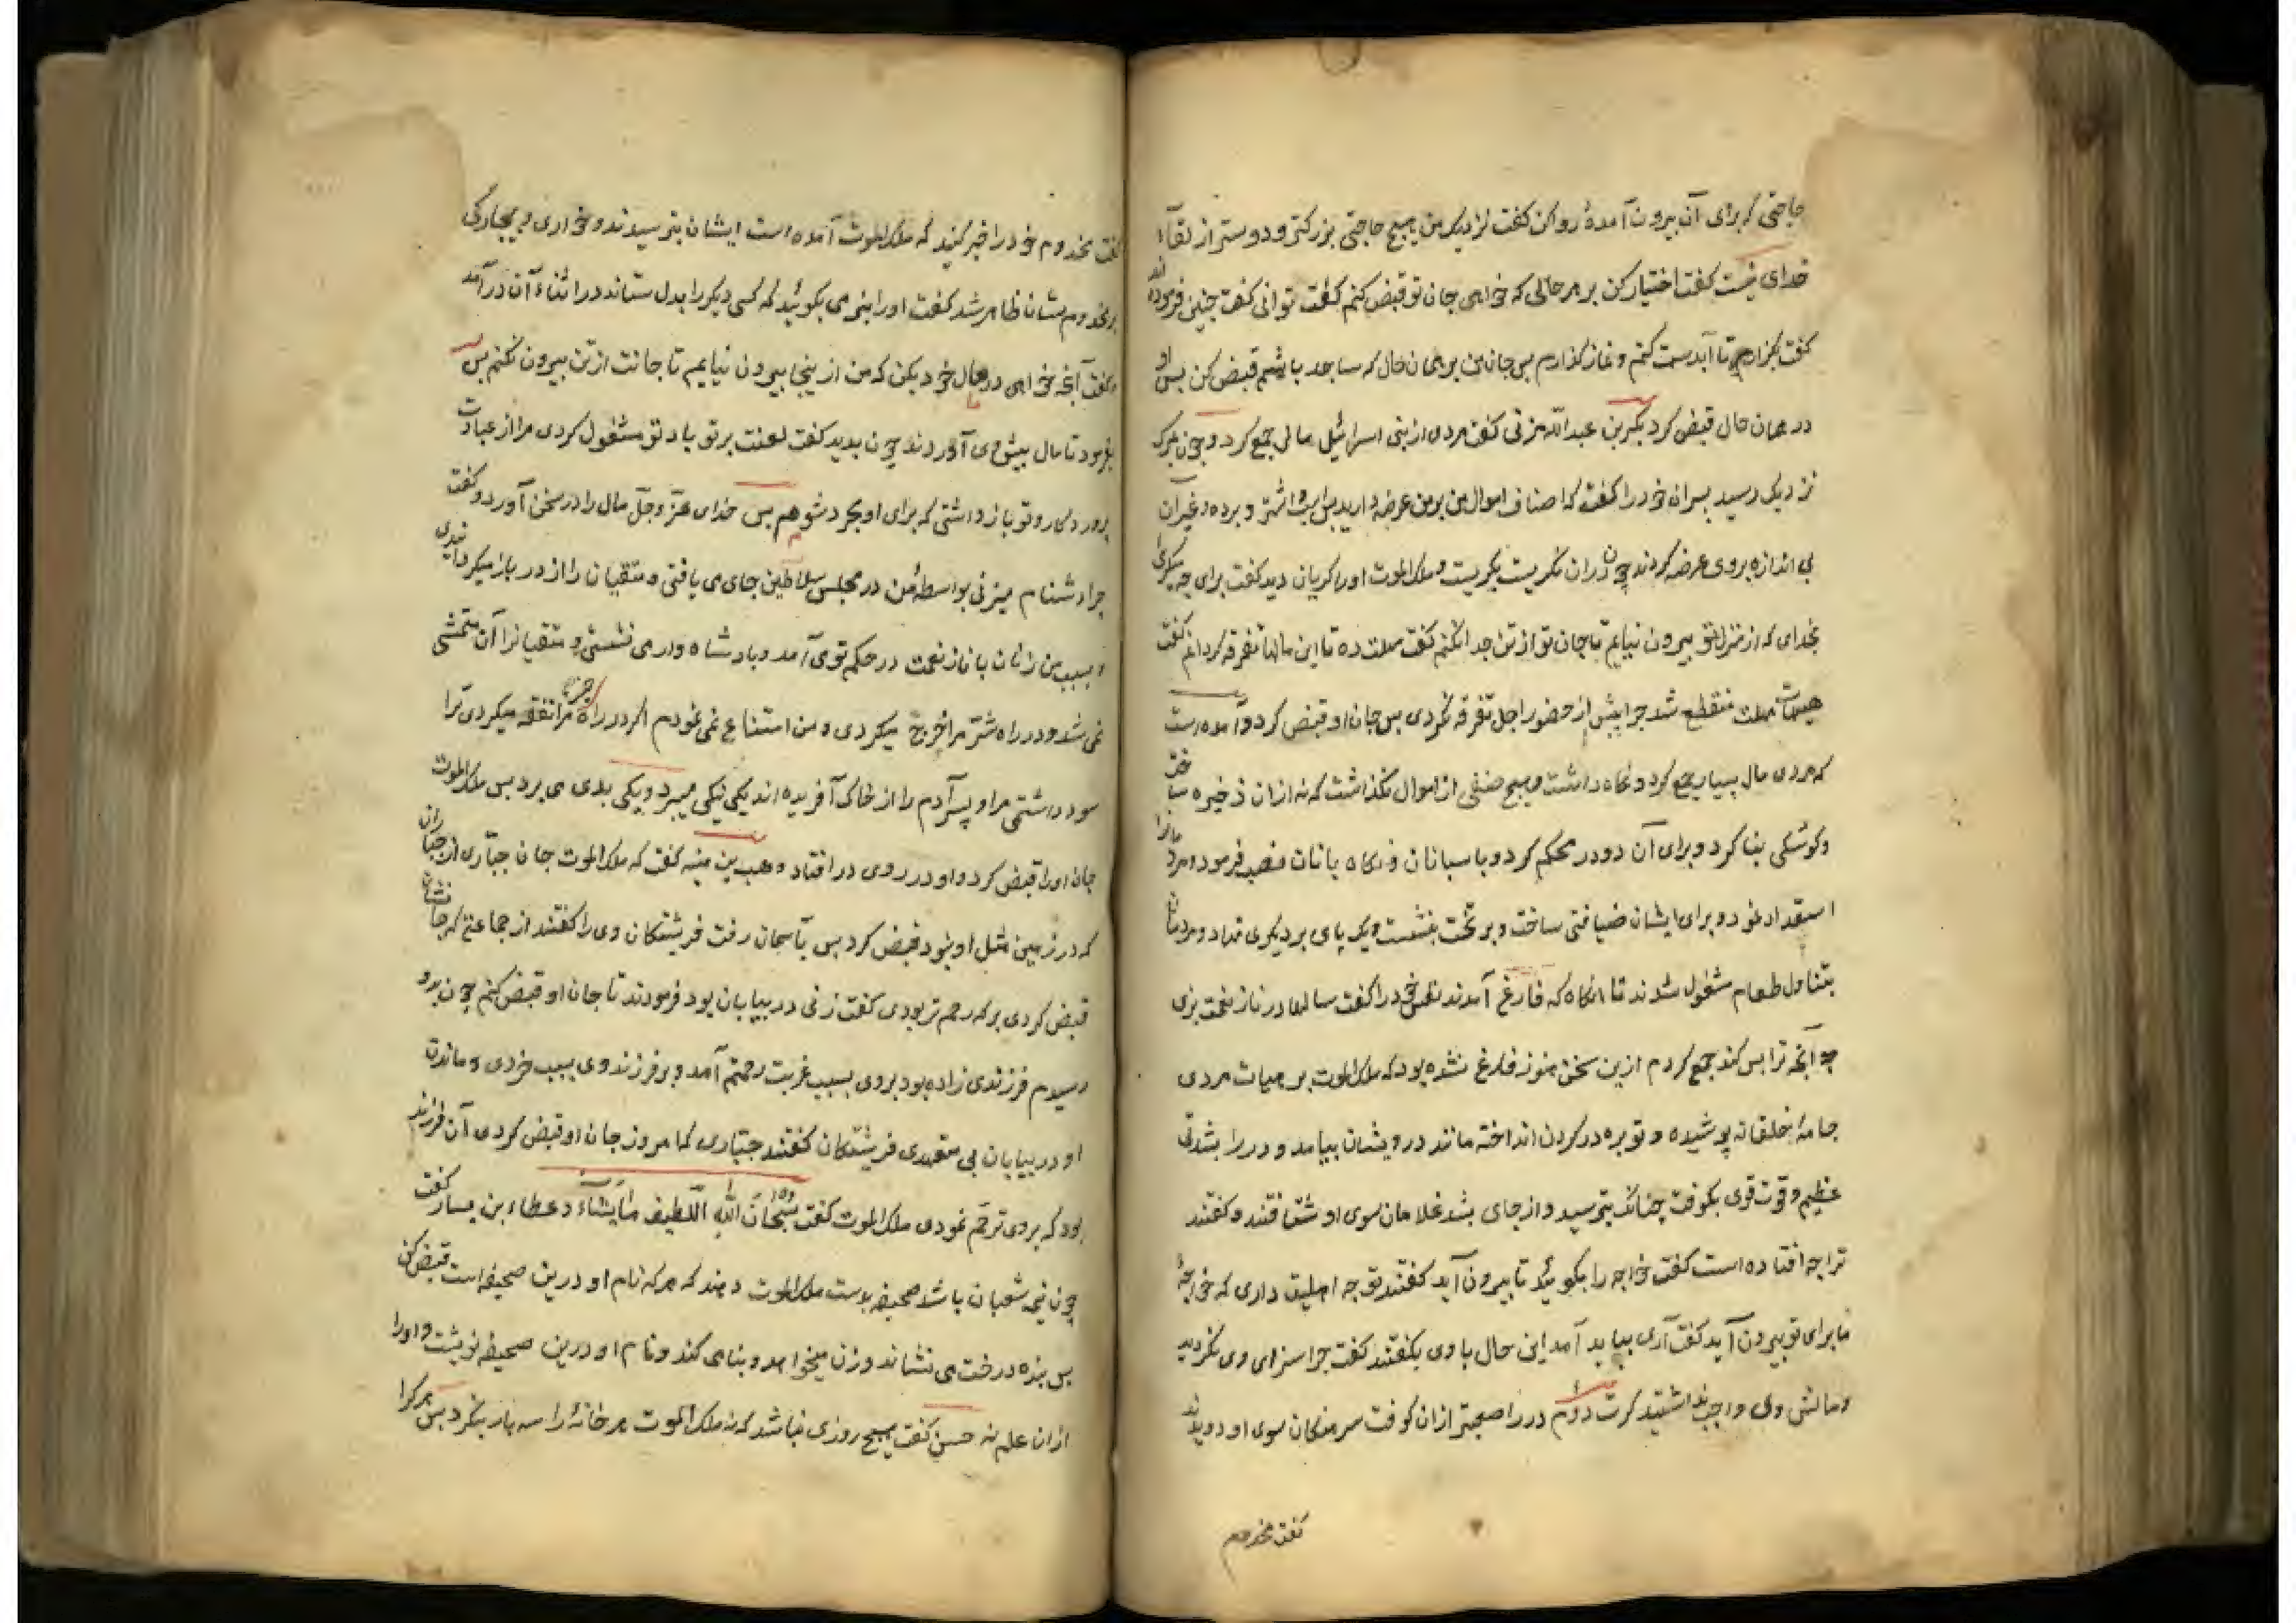 حاجتی که برای آن بیرون آمدهٔ روا کن کفت نزدیک من هیچ حاجتی بزرکتر و دوستر از لقآء
خدای نیست کفت اختیار کن بر هر حالی که خواهی جان تو قبض کنم کفت توانی کفت چنین فرموده اند
کفت بکذارم تا آبدست کنم و نماز کذارم بس جان من بر همان حال که ساجد باشم قبض کن بس او
در همان حال قبض کرد بکر بن عبدالله مزنی کفت مردی از بنی اسرائیل مالی جمع کرد و چون مرک
نزدیک رسید بسران خود را کفت که اصناف اموال من بر من عرضه دارید بس اشتر و برده و غیر آن
بی اندازه بر وی عرضه کردند چون دران نکریست بکریست و ملک الموت او را کریان دید کفت برای چه میکریی
بخدای که از منزل تو بیرون نیایم تا جان تو از تن جدا نکنم کفت مهلت ده تا این مالها تفرقه کردانم کفت
هیهات مهلت منقطع شد چرا پیش از حضور اجل تفرقه نکردی بس جان او قبض کرد و آمده است
که مردی مال بسیار جمع کرد و نکاه داشت و هیچ صنفی از اموال نکذاشت که نه ازان ذخیره ساخت
و کوشکی بنا کرد و برای آن دو در محکم کرد و باسبانان و نکاه بانان نصب فرمود و مردمانرا
استعداد نمود و برای ایشان ضیافتی ساخت و بر تخت بنشست و یک پای بر دیکری نهاد و مردمان
بتناول طعام مشغول شدند تا انکاه که فارغ آمدند نفس خود را کفت سالها در ناز نعمت بزی
چه آنچه ترا بس کند جمع کردم ازین سخن هنوز فارغ نشده بود که ملک الموت بر هیات مردی
جامهٔ خلقانه پوشیده و توبره در کردن انداخته مانند درویشان بیامد و در را بشدتی
عظیم و قوت قوی بکوفت چنانک بترسید و از جای بشد غلامان سوی او شتافتند و کفتند
ترا چه افتاده است کفت خواجه را بکوئید تا بیرون آید کفتند تو چه اهلیت داری که خواجهٔ
ما برای تو بیرون آید کفت آری بباید آمد این حال با وی بکفتند کفت چرا سزای وی نکردید
و مالش وی واجب نداشتید کرت دوم در را صعبتر ازان کوفت سرهنکان سوی او دویدند
کفت مخدوم
کفت مخدوم خود را خبر کنید که ملک الموت آمده است ایشان بترسیدند و خواری و بیچارکی
بر مخدوم شان ظاهر شد کفت او را بنرمی بکوئید که کسی دیکر را بدل ستاند در اثناء آن درآمد
و کفت آنچه خواهی در مال خود بکن که من از ینجا بیرون نیایم تا جانت از تن بیرون نکنم بس
بفرمود تا مال پیش وی آوردند چون بدید کفت لعنت بر تو باد تو مشغول کردی مرا از عبادت
پروردکار و تو باز داشتی که برای او مجرد شوم بس خدای عز و جل مال را در سخن آورد و کفت
چرا دشنام میزنی بواسطهٔ من در مجلس سلاطین جای می یافتی و متقیان را از در باز میکردانیدی
و بسبب من زنان با ناز نعمت در حکم تو می آمد و بادشاه وار می نشستی و متقیانرا آن متمشی
نمی شد و در راه شر مرا خرج میکردی و من امتناع نمی نمودم اکر در راه خیر مرا نفقه میکردی ترا
سود داشتمی مرا و پسر آدم را از خاک آفریده اند یکی نیکی میبرد و یکی بدی می برد بس ملک الموت
جان او را قبض کرد و او در روی در افتاد وهب بن منبه کفت که ملک الموت جان جبّاری از جباران
که در زمین مثل او نبود قبض کرد بس بآسمان رفت فرشتکان وی را کفتند از جماعتی که جانشان
قبض کردی بر که رحم تر بودی کفت زنی در بیابان بود فرمودند تا جان او قبض کنم چون برو
رسیدم فرزندی زاده بود بر وی بسبب غربت رحمتم آمد و بر فرزند وی بسبب خردی و ماندن
او در بیابان بی متعهدی فریشتکان کفتند جبّاری که امروز جان او قبض کردی آن فرزند
بود که بر وی ترحم نمودی ملک الموت کفت سُبْحَانَ اللهِ اللَّطِیفِ لِمَا یَشَآءُ و عطاء بن یسار کفت
چون نیمه شعبان باشد صحیفه بدست ملک الموت دهند که هر که نام او درین صحیفه است قبض کن
بس بنده درخت می نشاند و زن میخواهد و بنا می کند و نام او درین صحیفه نوشت و او را
ازان علم نه حسن کفت هیچ روزی نباشد که نه ملک الموت هر خانهٔ را سه بار بنکرد بس هر کرا